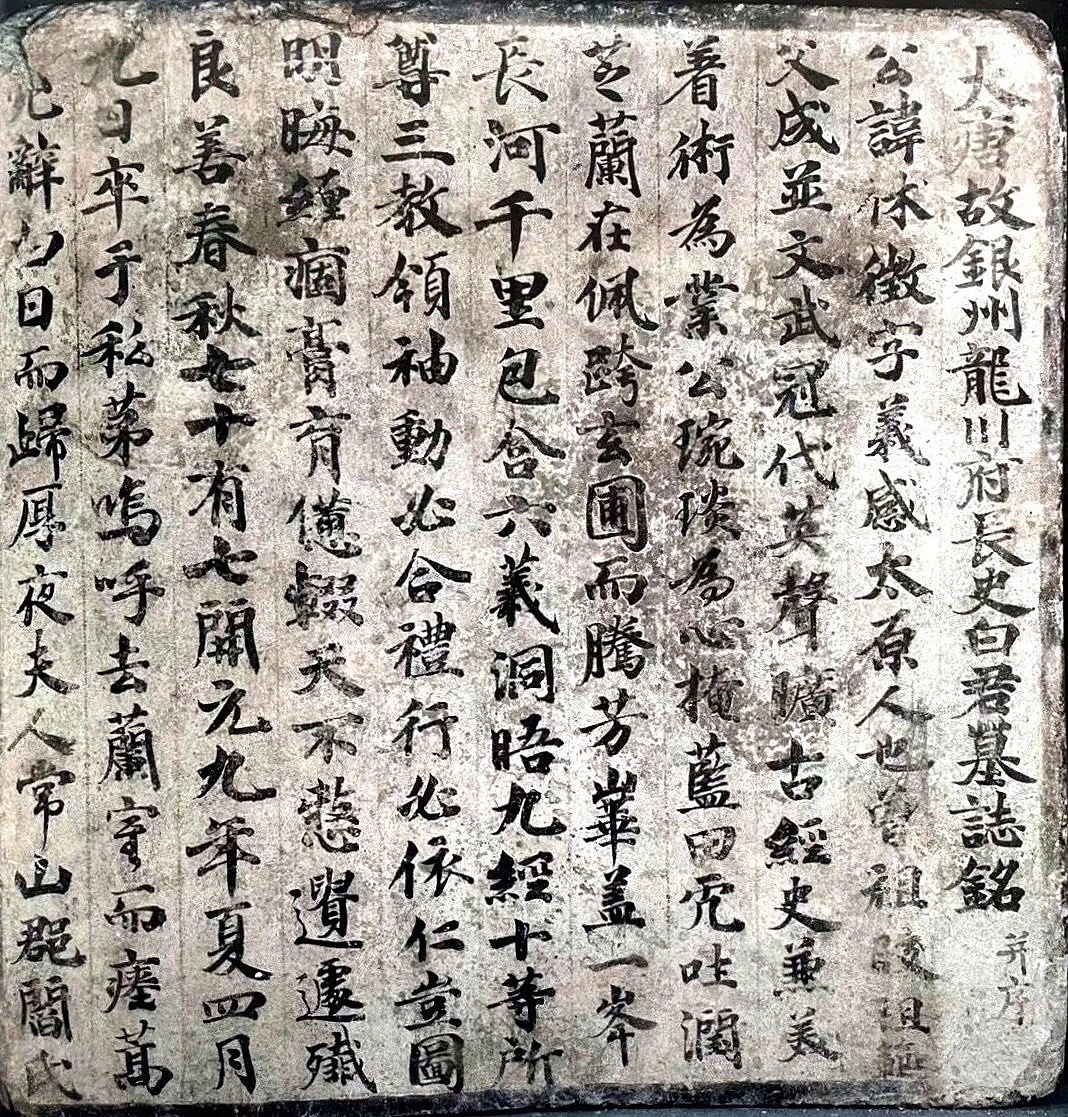 大唐故銀州龍川府長史白君墓誌銘 并序
公諱休徵字義感太原人也曾祖陵祖
父成並文武冠代英聲曠古經史兼美
着術為業公琬琰為心掩藍田而吐潤
芝蘭在佩跨玄圃而騰芳崋盖一峯
長河千里包含六義洞晤九經十等所
尊三教領袖動必合禮行必依仁豈圖
明晦纏痼膏肓僊輟天不憗遺遽殲
良善春秋七十有七開元九年夏四月
九日卒于私苐嗚呼去蘭室而瘞蒿
辭白日而歸厚夜夫人常山郡閻氏